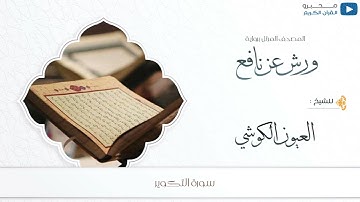 مـحـبـرو
القرآن الكريم
المصحف المرتل برواية
ورش عن نافع
للشيخ :
العيون الكوشي
سورة التكوير